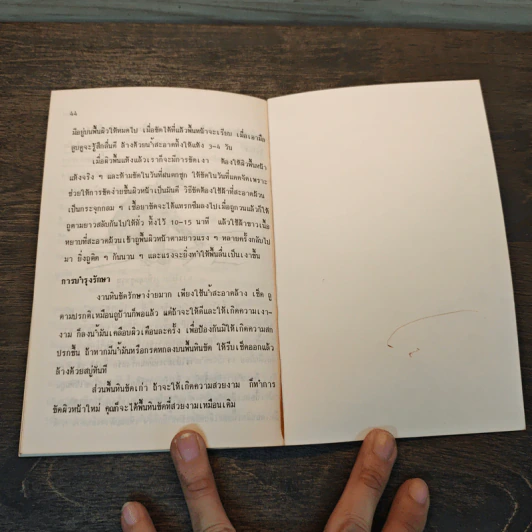 44
มีอยู่บนพื้นผิวให้หมดไป เมื่อขัดได้ที่แล้วพื้นหน้าจะเรียบ เมื่อเอามือ
ลูบดูจะรู้สึกลื่นดี ล้างด้วยน้ำสะอาดทิ้งให้แห้ง 3-4 วัน
เมื่อผิวพื้นแห้งแล้วเราก็จะมีการขัดเงา ต้องให้ผิวพื้นหน้า
แห้งจริง ๆ และห้ามขัดในวันที่ฝนตกชุก ให้ขัดในวันที่แดดจัดเพราะ
ช่วยให้การขัดง่ายขึ้นผิวหน้าเป็นมันดี วิธีขัดต้องใช้ผ้าที่สะอาดม้วน
เป็นกระจุกกลม ๆ เชื้อยาขัดจะได้แทรกซึมลงไปเมื่อถูกวนแล้วก็ให้
ถูตามยาวสลับกันไปให้ทั่ว ทิ้งไว้ 10-15 นาที แล้วใช้ผ้าขาวเนื้อ
หยาบที่สะอาดม้วนเข้าถูพื้นผิวหน้าตามยาวแรง ๆ หลายครั้งกลับไป
มา ยิ่งถูติด ๆ กันนาน ๆ และแรงจะยิ่งทำให้พื้นลื่นเป็นเงาขึ้น
การบำรุงรักษา
งานหินขัดรักษาง่ายมาก เพียงใช้น้ำสะอาดล้าง เช็ด ถู
ตามปรกติเหมือนถูบ้านก็พอแล้ว แต่ถ้าจะให้ดีและให้เกิดความเงา-
งาม ก็ลงน้ำมันเคลือบผิวเดือนละครั้ง เพื่อป้องกันมิให้เกิดความสก
ปรกขึ้น ถ้าหากมีน้ำมันหรือกรดหกลงบนพื้นหินขัด ให้รีบเช็ดออกแล้ว
ล้างด้วยสบู่ทันที
ส่วนพื้นหินขัดเก่า ถ้าจะให้เกิดความสวยงาม ก็ทำการ
ขัดผิวหน้าใหม่ คุณก็จะได้พื้นหินขัดที่สวยงามเหมือนเดิม